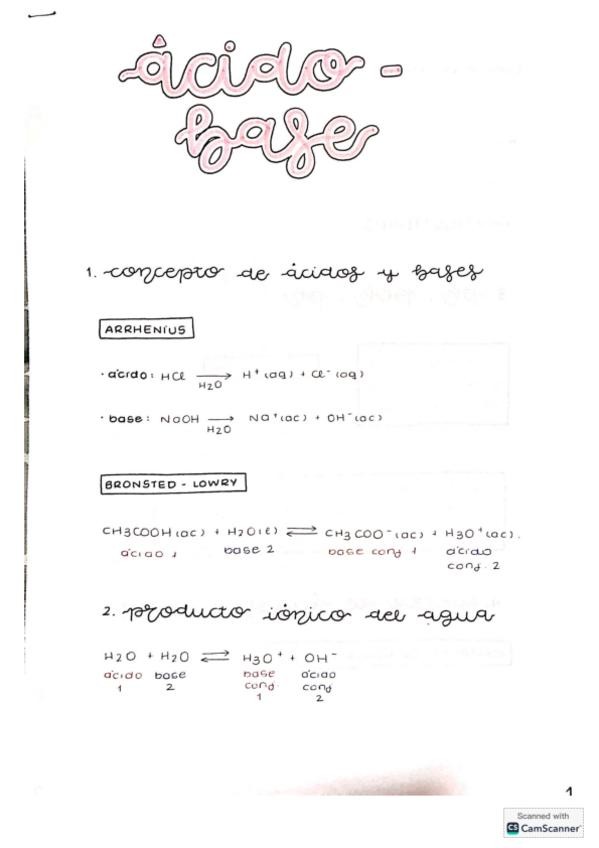 ácido -
base
1. concepto de ácidos y bases
ARRHENIUS
· ácido: HCl ⟶ H⁺(aq) + Cl⁻(aq)
H2O
· base: NaOH ⟶ Na⁺(ac) + OH⁻(ac)
H2O
BRONSTED - LOWRY
CH3COOH(ac) + H2O(l) ⇌ CH3COO⁻(ac) + H3O⁺(ac).
ácido 1 base 2 base conj 1 ácido
conj. 2
2. producto iónico del agua
H2O + H2O ⇌ H3O⁺ + OH⁻
ácido base base ácido
1 2 conj. conj
1 2
1
Scanned with
CS CamScanner